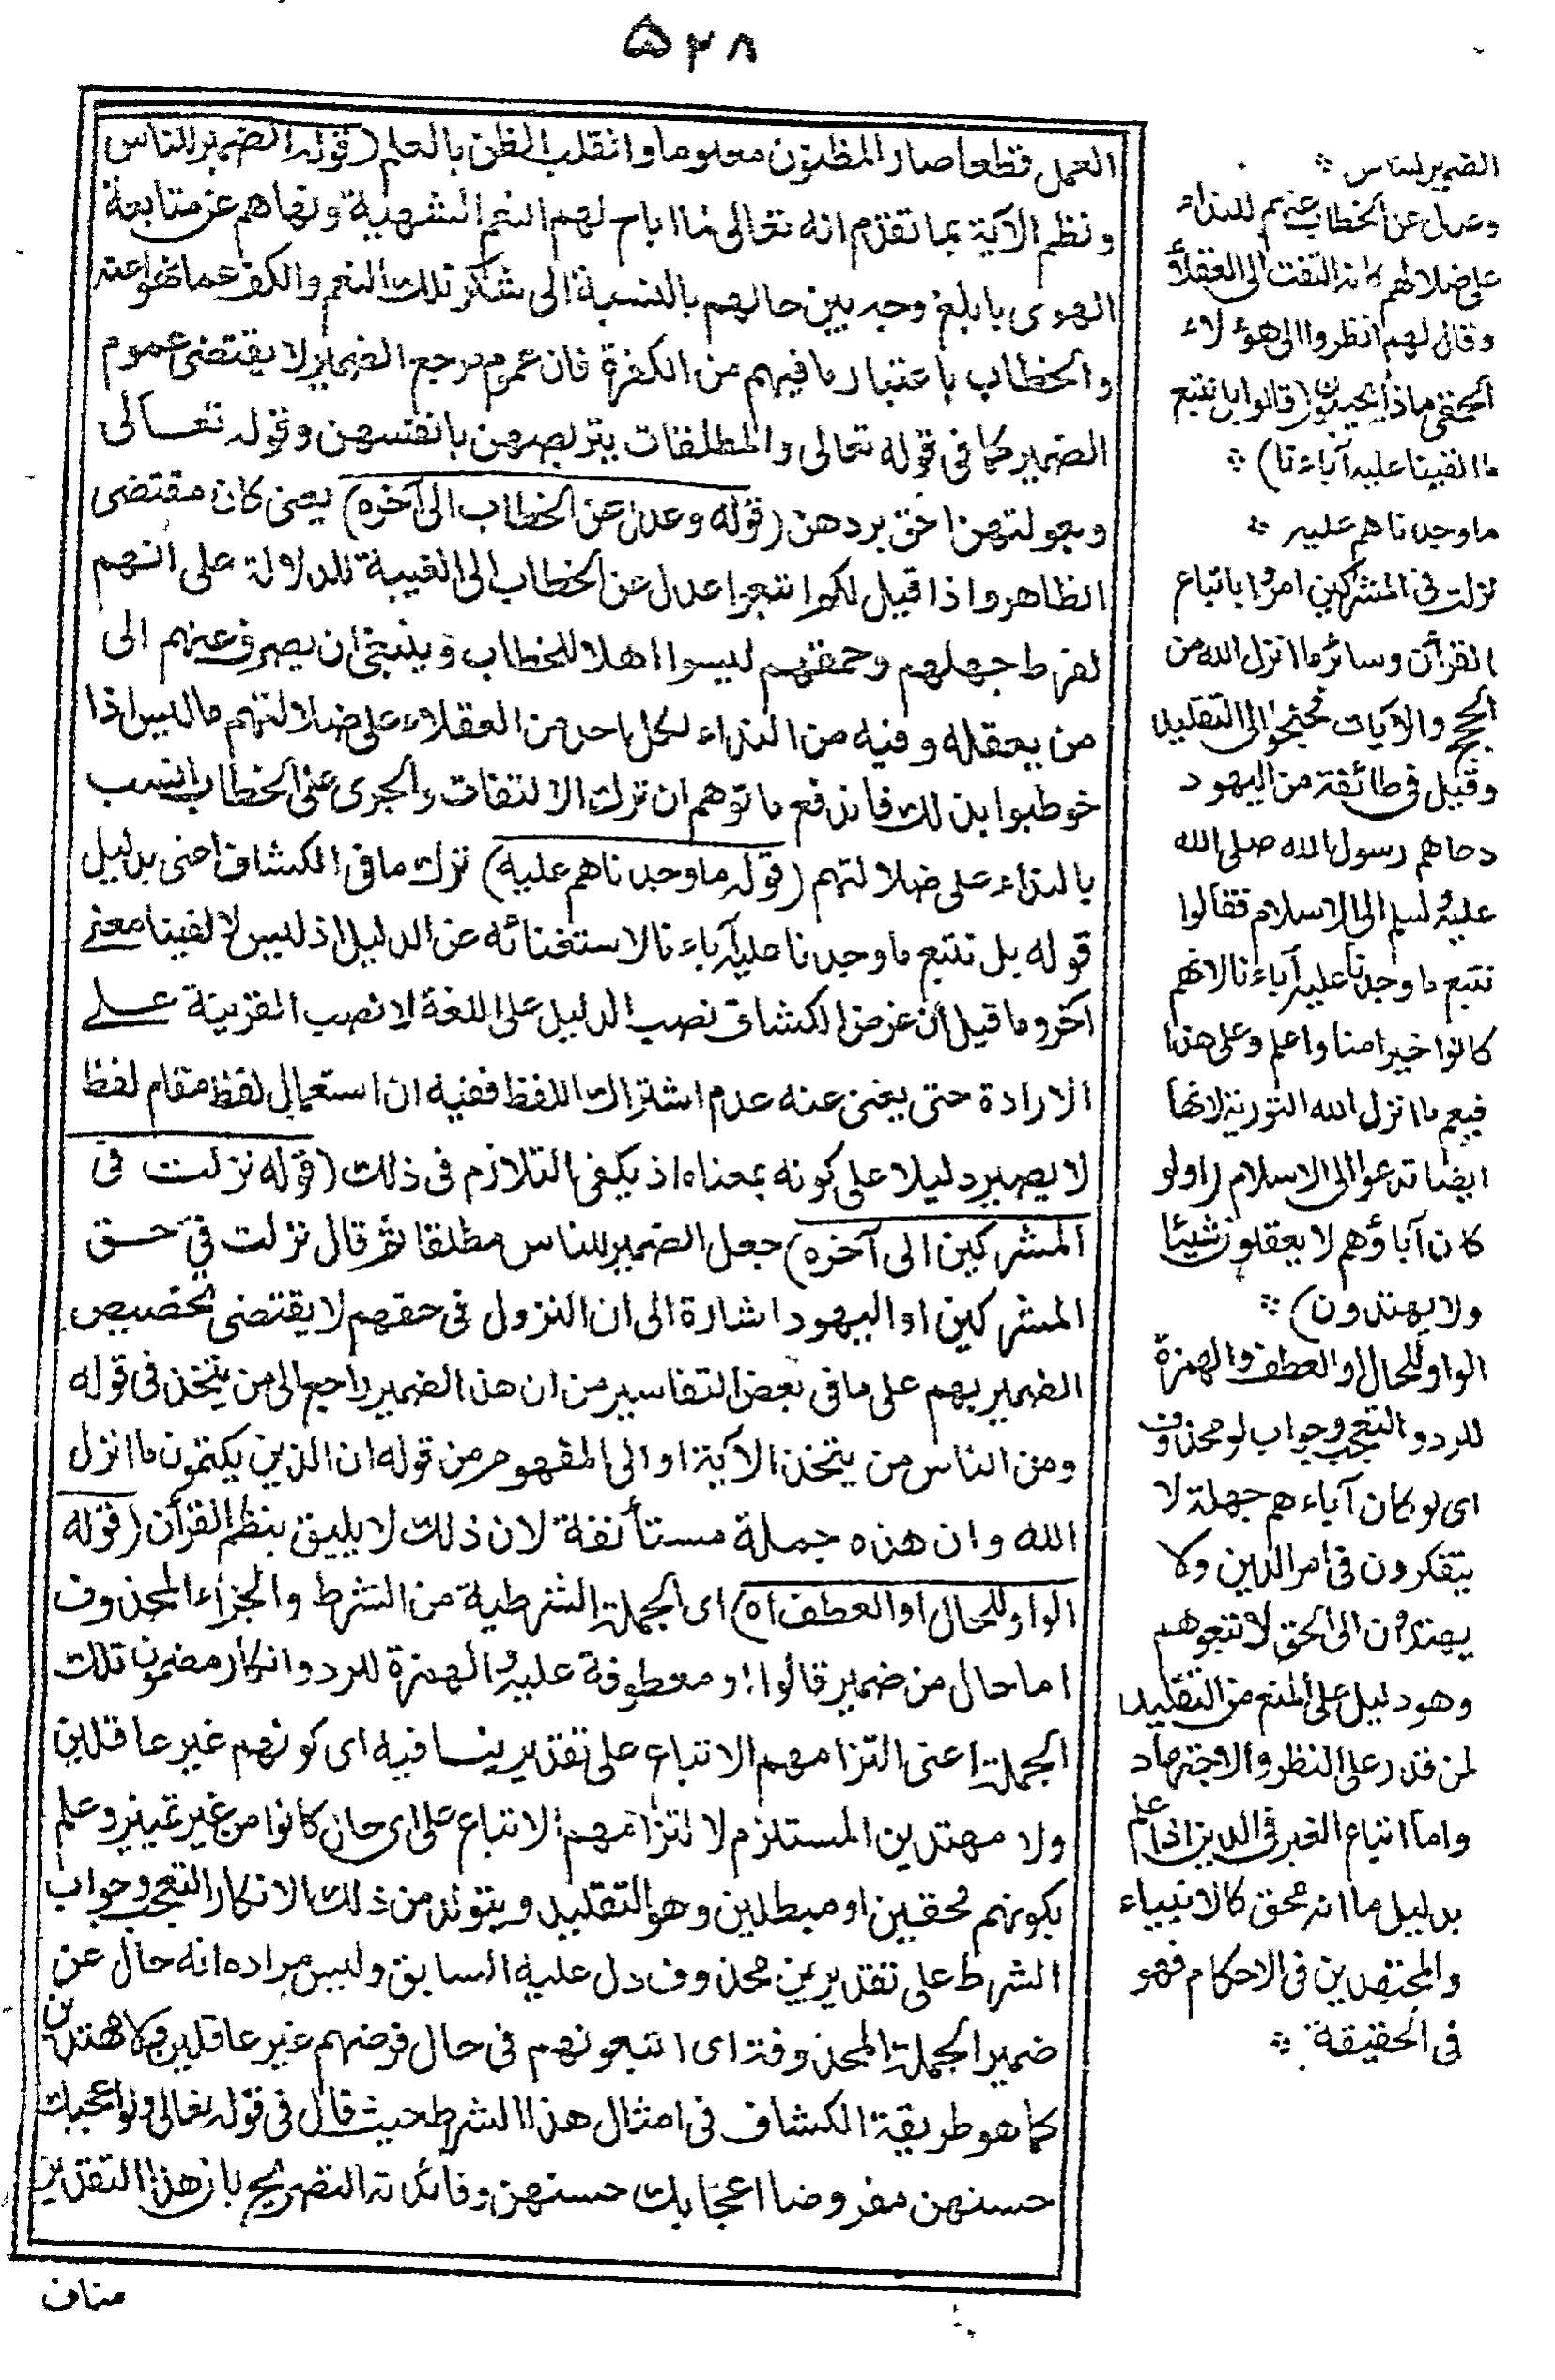 ۵۲۸
العمل قطعا صار المظنون معلوما وانقلب الظن بالعلم (قوله الضمير للناس
ونظم الآية بما تقدم انه تعالى لما اباح لهم النعم الشهية ونهاهم عن متابعة
الهوى بابلغ وجه بين حالهم بالنسبة الى شكر تلك النعم والكف عما نهوا عنه
والخطاب باعتبار ما فيهم من الكفرة فان عموم مرجع الضمير لا يقتضى عموم
الضمير كما فى قوله تعالى والمطلقات يتربصهن بانفسهن وقوله تعالى
وبعولتهن احق بردهن (قوله وعدل عن الخطاب الى آخره) يعنى كان مقتضى
الظاهر واذا قيل لكم اتبعوا عدل عن الخطاب الى الغيبة للدلالة على انهم
لفرط جهلهم وحمقهم ليسوا اهلا للخطاب وينبغى ان يصرف عنهم الى
من يعقله وفيه من النداء لكل احد من العقلاء على ضلالتهم ما ليس اذا
خوطبوا بذلك فاندفع ما توهم ان ترك الالتفات والجرى على الخطاب انسب
بالنداء على ضلالتهم (قوله ما وجدناهم عليه) ترك ما فى الكشاف اعنى بدليل
قوله بل نتبع ما وجدنا عليه آباءنا لاستغنائه عن الدليل اذ ليس لالفينا معنى
آخر وما قيل ان غرض الكشاف نصب الدليل على اللغة لا نصب القرينة على
الارادة حتى يغنى عنه عدم اشتراك اللفظ ففيه ان استعمال لفظ مقام لفظ
لا يصير دليلا على كونه بمعناه اذ يكفى التلازم فى ذلك (قوله نزلت فى
المشركين الى آخره) جعل الضمير للناس مطلقا ثم قال نزلت فى حق
المشركين او اليهود اشارة الى ان النزول فى حقهم لا يقتضى تخصيص
الضمير بهم على ما فى بعض التفاسير من ان هذا الضمير راجع الى من يتخذ فى قوله
ومن الناس من يتخذ الآية او الى المفهوم من قوله ان الذين يكتمون ما انزل
الله وان هذه جملة مستأنفة لان ذلك لا يليق بنظم القرآن (قوله
الواو للحال او العطف اه) اى الجملة الشرطية من الشرط والجزاء المحذوف
اما حال من ضمير قالوا او معطوفة عليه والهمزة للرد وانكار مضمون تلك
الجملة اعنى التزامهم الاتباع على تقدير ينافيه اى كونهم غير عاقلين
ولا مهتدين المستلزم لالتزامهم الاتباع على اى حال كانوا من غير تمييز وعلم
بكونهم محقين او مبطلين وهو التقليد ويتولد من ذلك الانكار التعجب وجواب
الشرط على تقديرين محذوف دل عليه السابق وليس مراده انه حال عن
ضمير الجملة المحذوفة اى اتتبعونهم فى حال فرضهم غير عاقلين ولا مهتدين
كما هو طريقة الكشاف فى امثال هذا الشرط حيث قال فى قوله تعالى ولو اعجبك
حسنهن مفروضا اعجابك حسنهن وفائدته التصريح بان هذا التقدير
مناف
الضمير للناس
وعدل عن الخطاب عنهم للنداء
على ضلالهم كانه التفت الى العقلاء
وقال لهم انظروا الى هؤلاء
الحمقى ماذا يجيبون (قالوا بل نتبع
ما الفينا عليه آباءنا)
ما وجدناهم عليه
نزلت فى المشركين امروا باتباع
القرآن وسائر ما انزل الله من
الحجج والآيات فجنحوا الى التقليد
وقيل فى طائفة من اليهود
دعاهم رسول الله صلى الله
عليه وسلم الى الاسلام فقالوا
نتبع ما وجدنا عليه آباءنا لانهم
كانوا خيرا منا واعلم وعلى هذا
فيعم ما انزل الله التورية لانها
ايضا تدعوا الى الاسلام (اولو
كان آباؤهم لا يعقلون شيئا
ولا يهتدون)
الواو للحال او العطف والهمزة
للرد والتعجب وجواب لو محذوف
اى لو كان آباءهم جهلة لا
يتفكرون فى امر الدين ولا
يهتدون الى الحق لاتبعوهم
وهو دليل على المنع من التقليد
لمن قدر على النظر والاجتهاد
واما اتباع الغير فى الدين اذا علم
بدليل ما انه محق كالانبياء
والمجتهدين فى الاحكام فهو
فى الحقيقة